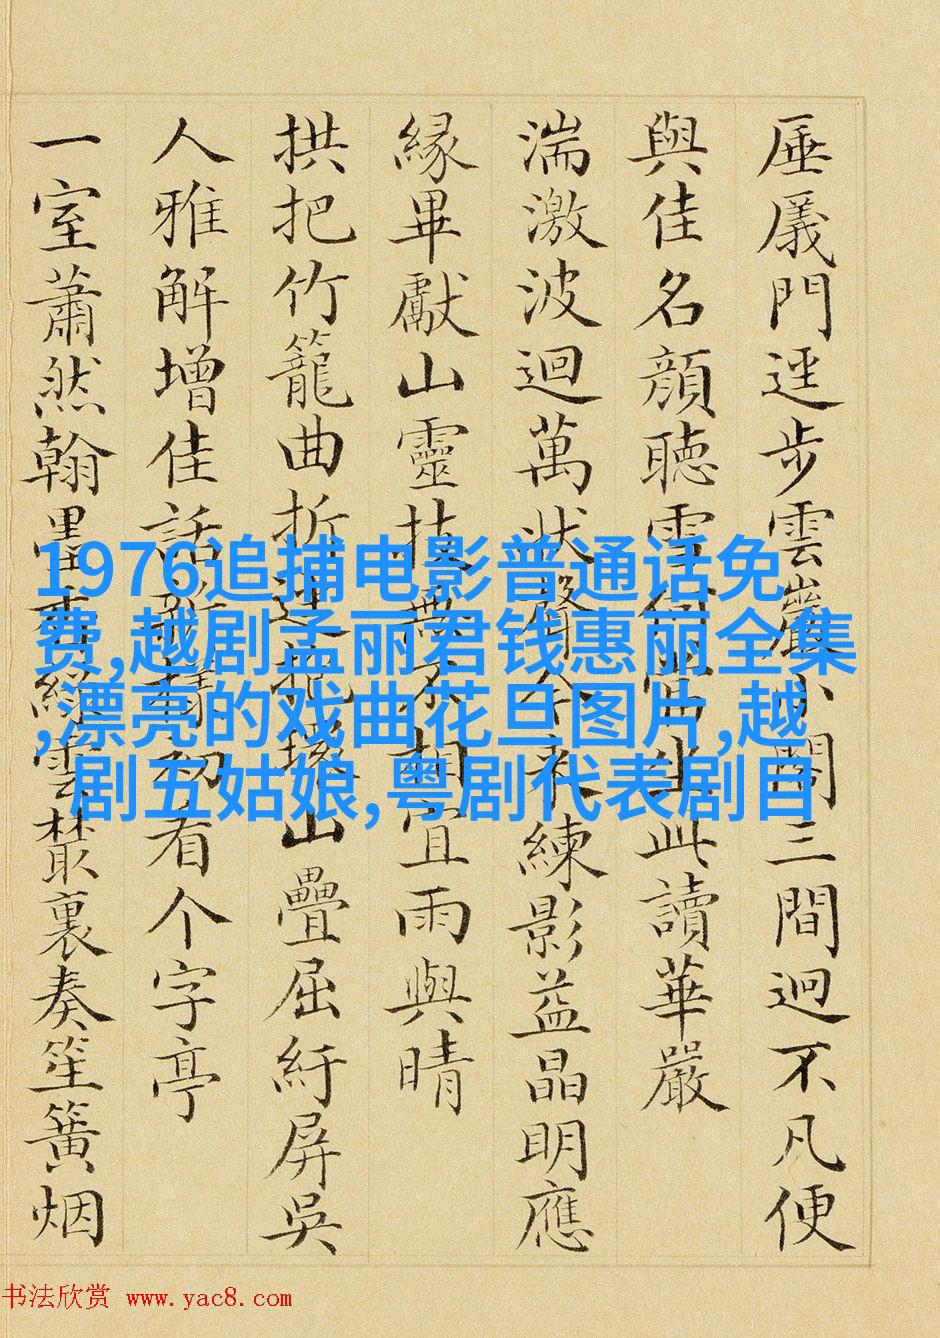 厜㕒門逕步雲巖小閣三間迥不凡便
與佳名顏聽雪何當坐此讀華嚴
湍激波迴萬狀聲今來練影益晶明應
緣畢獻山靈技無不相宜雨與晴
拱把竹籠曲折逕山疊屈紆屏吳
人雅解增佳話新構初有个字亭
一室蕭然翰墨香綠雲叢裏奏笙簧烟
1976追捕电影普通话免
费,越剧孟丽君钱惠丽全集
,漂亮的戏曲花旦图片,越
剧五姑娘,粤剧代表剧目
书法欣赏 www.yac8.com